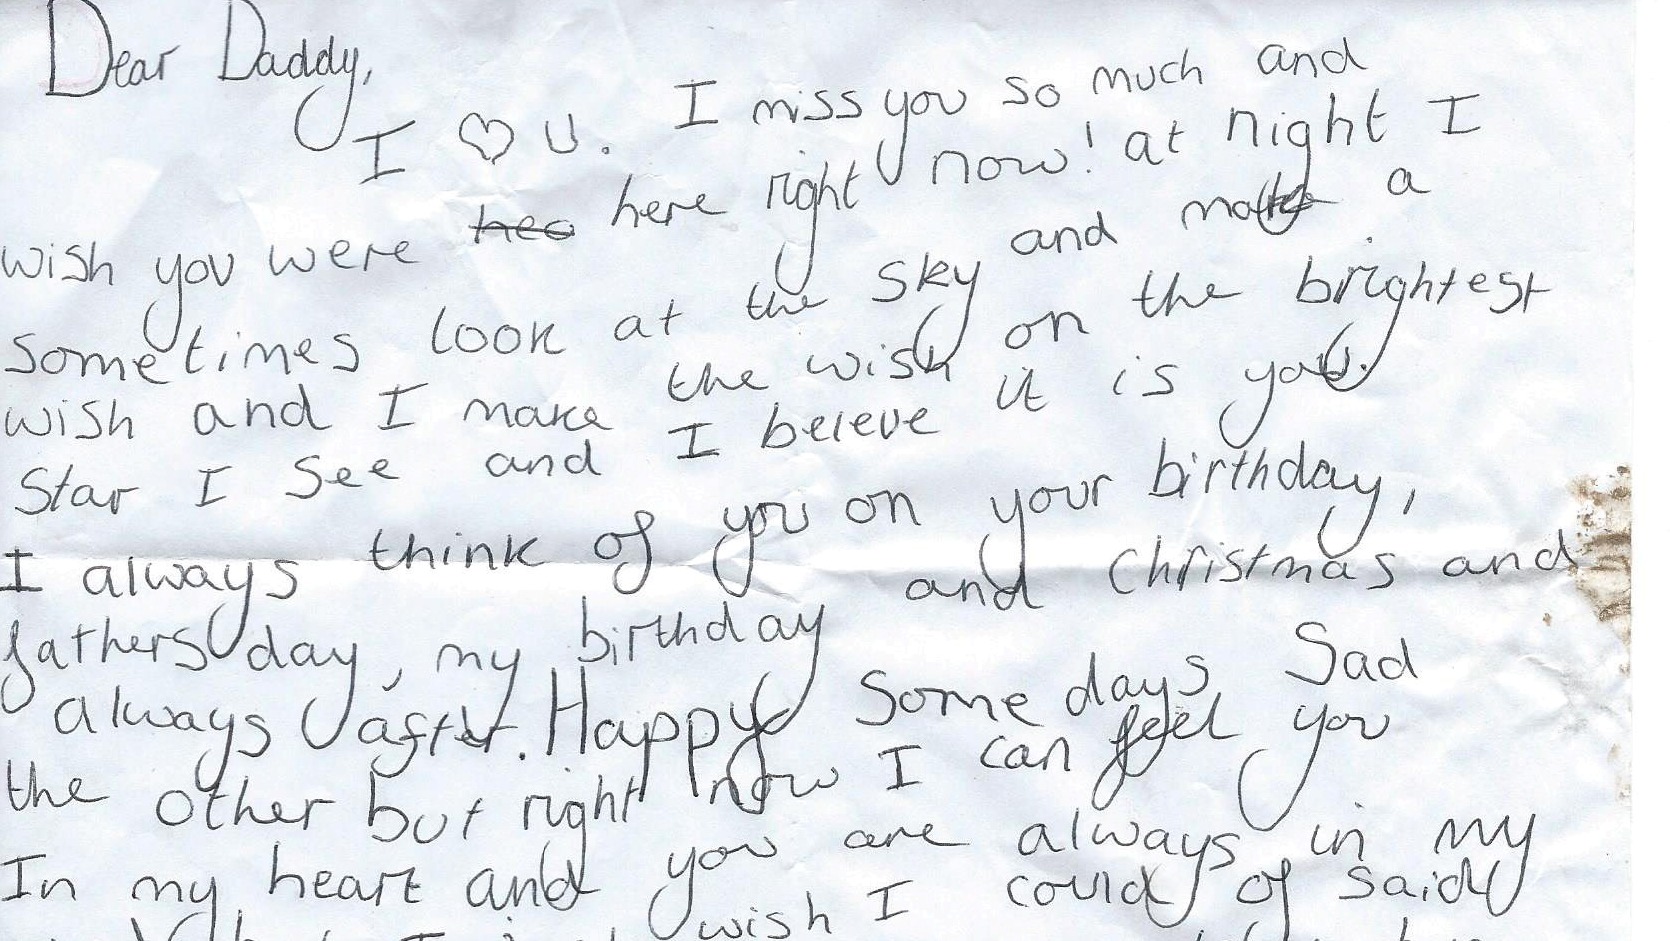 Dear Daddy,
I ♡ U. I miss you so much and
wish you were here right now! at night I
sometimes look at the sky and make a
wish and I make the wish on the brightest
Star I See and I beleve it is you.
I always think of you on your birthday,
fathers day, my birthday and Christmas and
always after. Happy Some days, Sad
the other but right now I can feel you
In my heart and you are always in my
wish I could of said